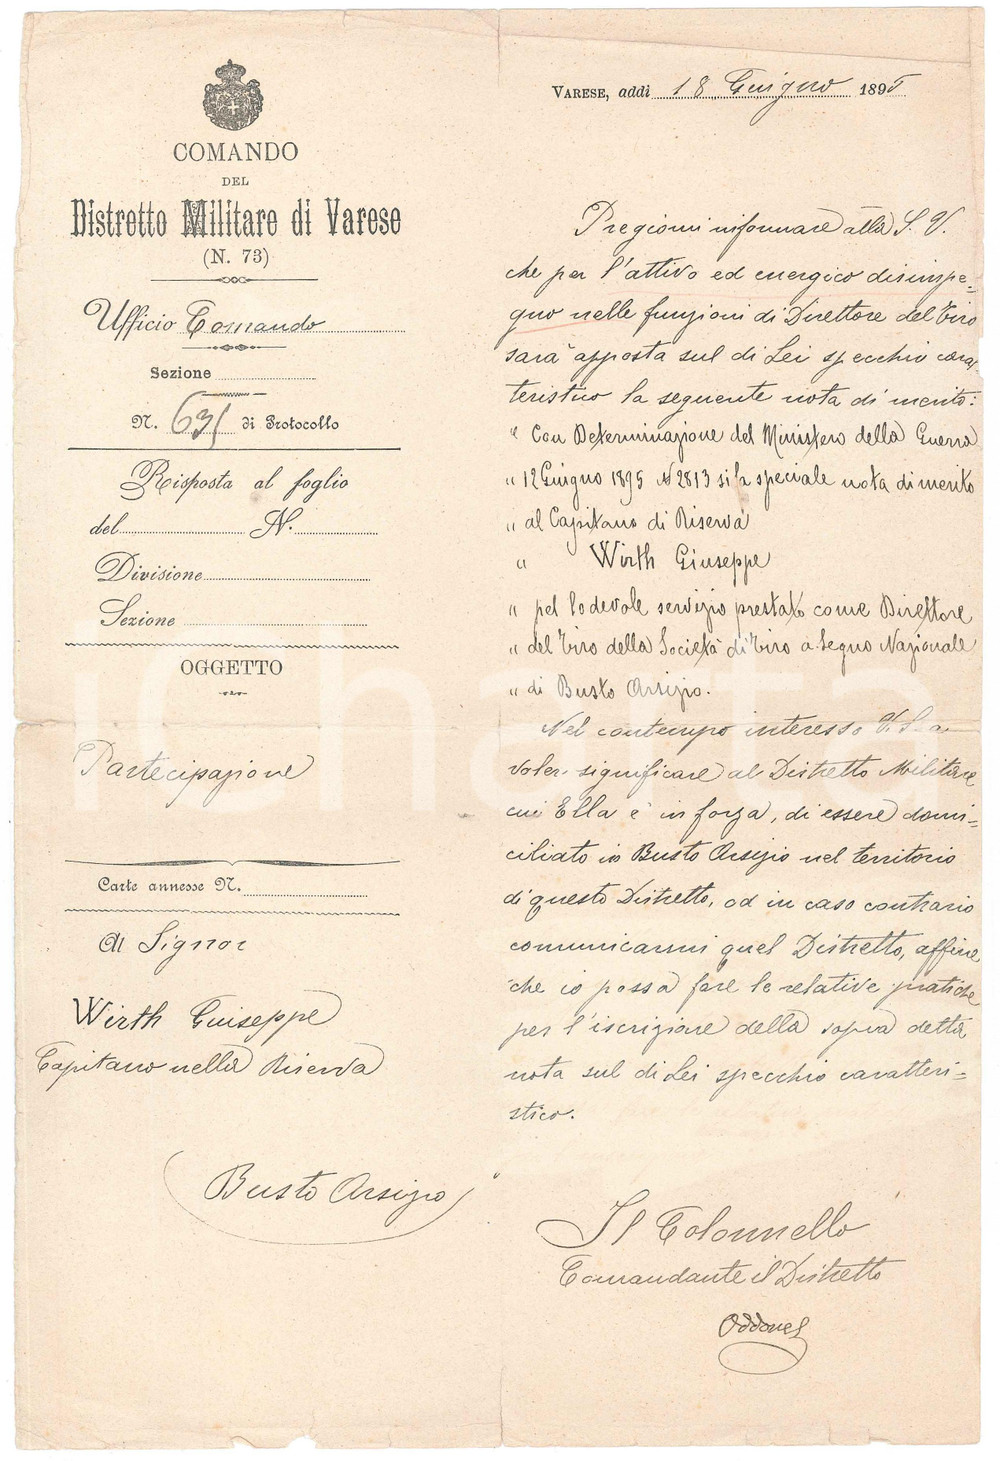 COMANDO
DEL
Distretto Militare di Varese
(N. 73)
Ufficio Comando
Sezione
N. 631 di Protocollo
Risposta al foglio
del N.
Divisione
Sezione
OGGETTO
Partecipazione
Carte annesse N.
Al Signor
Wirth Guiseppe
Capitano nella Riserva
Busto Arsizio
VARESE, addì 18 Giugno 1895
Pregiomi informare alla S. V.
che per l'attivo ed energico disimpe-
gno nelle funzioni di Direttore del Tiro
sarà apposta sul di Lei specchio carat-
teristico la seguente nota di merito:
" Con Determinazione del Ministero della Guerra
" 12 Giugno 1895 N 2813 si fa speciale nota di merito
" al Capitano di Riserva
" Wirth Giuseppe
" pel lodevole servizio prestato come Direttore
" del Tiro della Società di Tiro a Segno Nazionale
" di Busto Arsizio.
Nel contempo interesso V. S. a
voler significare al Distretto Militare
cui Ella è in forza, di essere domi=
ciliato in Busto Arsizio nel territorio
di questo Distretto, od in caso contrario
comunicarmi quel Distretto, affine
che io possa fare le relative pratiche
per l'iscrizione della sopra detta
nota sul di Lei specchio caratteri=
stico.
Il Colonnello
Comandante il Distretto